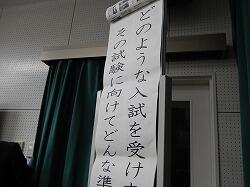 どのような入試を受け
その試験に向けてどんな準